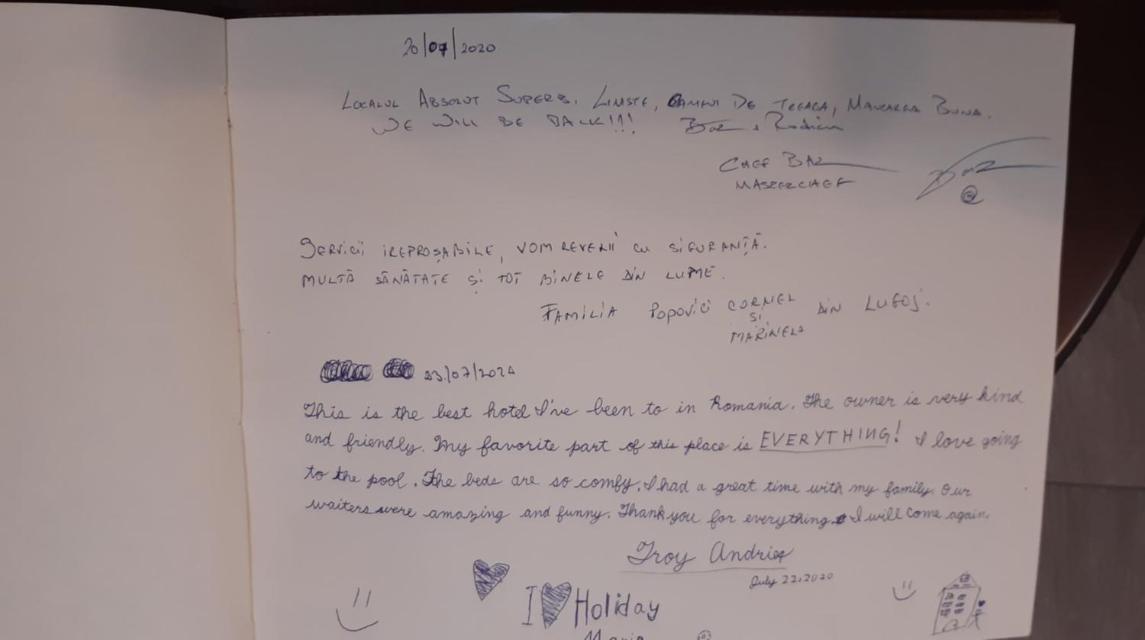 20/07/2020
LOCALUL ABSOLUT SUPERB. LINISTE, OAMENI DE TREABA, MANCAREA BUNA.
WE WILL BE BACK!!!
CHEF BAZ
MASTERCHEF
SERVICII IREPROȘABILE, VOM REVENII CU SIGURANȚĂ.
MULTĂ SĂNĂTATE ȘI TOT BINELE DIN LUME.
FAMILIA POPOVICI CORNEL
ȘI
MARINELA
DIN LUGOJ.
23/07/2020
This is the best hotel I've been to in Romania. The owner is very kind
and friendly. My favorite part of this place is EVERYTHING! I love going
to the pool. The beds are so comfy. I had a great time with my family. Our
waiters were amazing and funny. Thank you for everything. I will come again.
Troy Andries
July 22, 2020
I Holiday
Maria